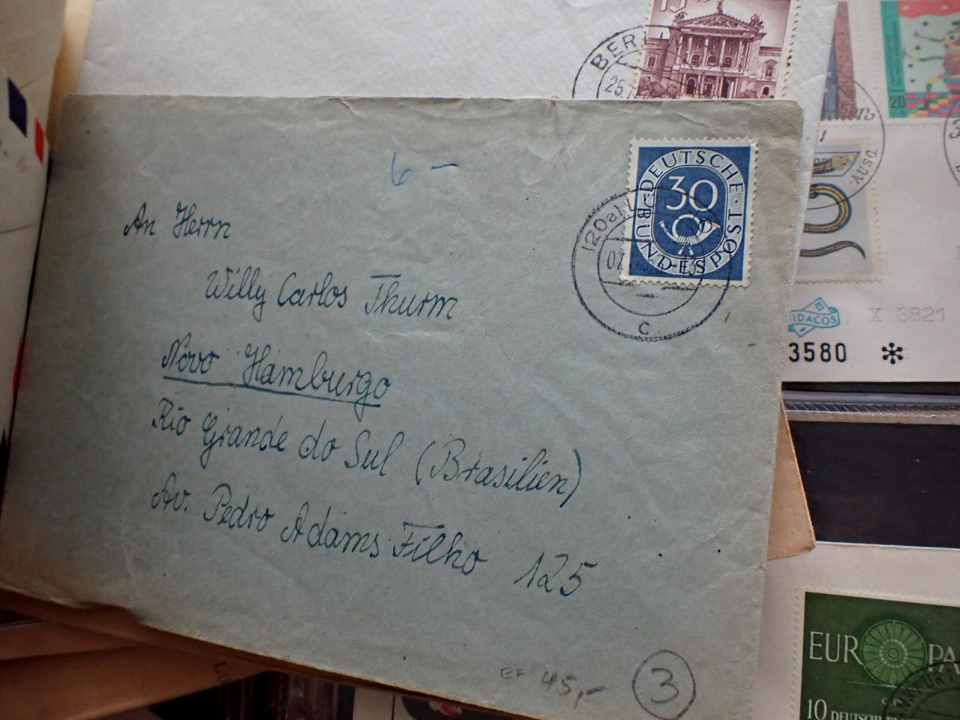 6 –
DEUTSCHE
30
BUNDESPOST
(20a)
07.
c
An Herrn
Willy Carlos Thurm
Novo Hamburgo
Rio Grande do Sul (Brasilien)
Av. Pedro Adams Filho 125
EF 45,-
3
15
BERL
25.
20
AUSG
IDACOS
X 6821
3580 *
EUROPA
10 DEUTSCHE